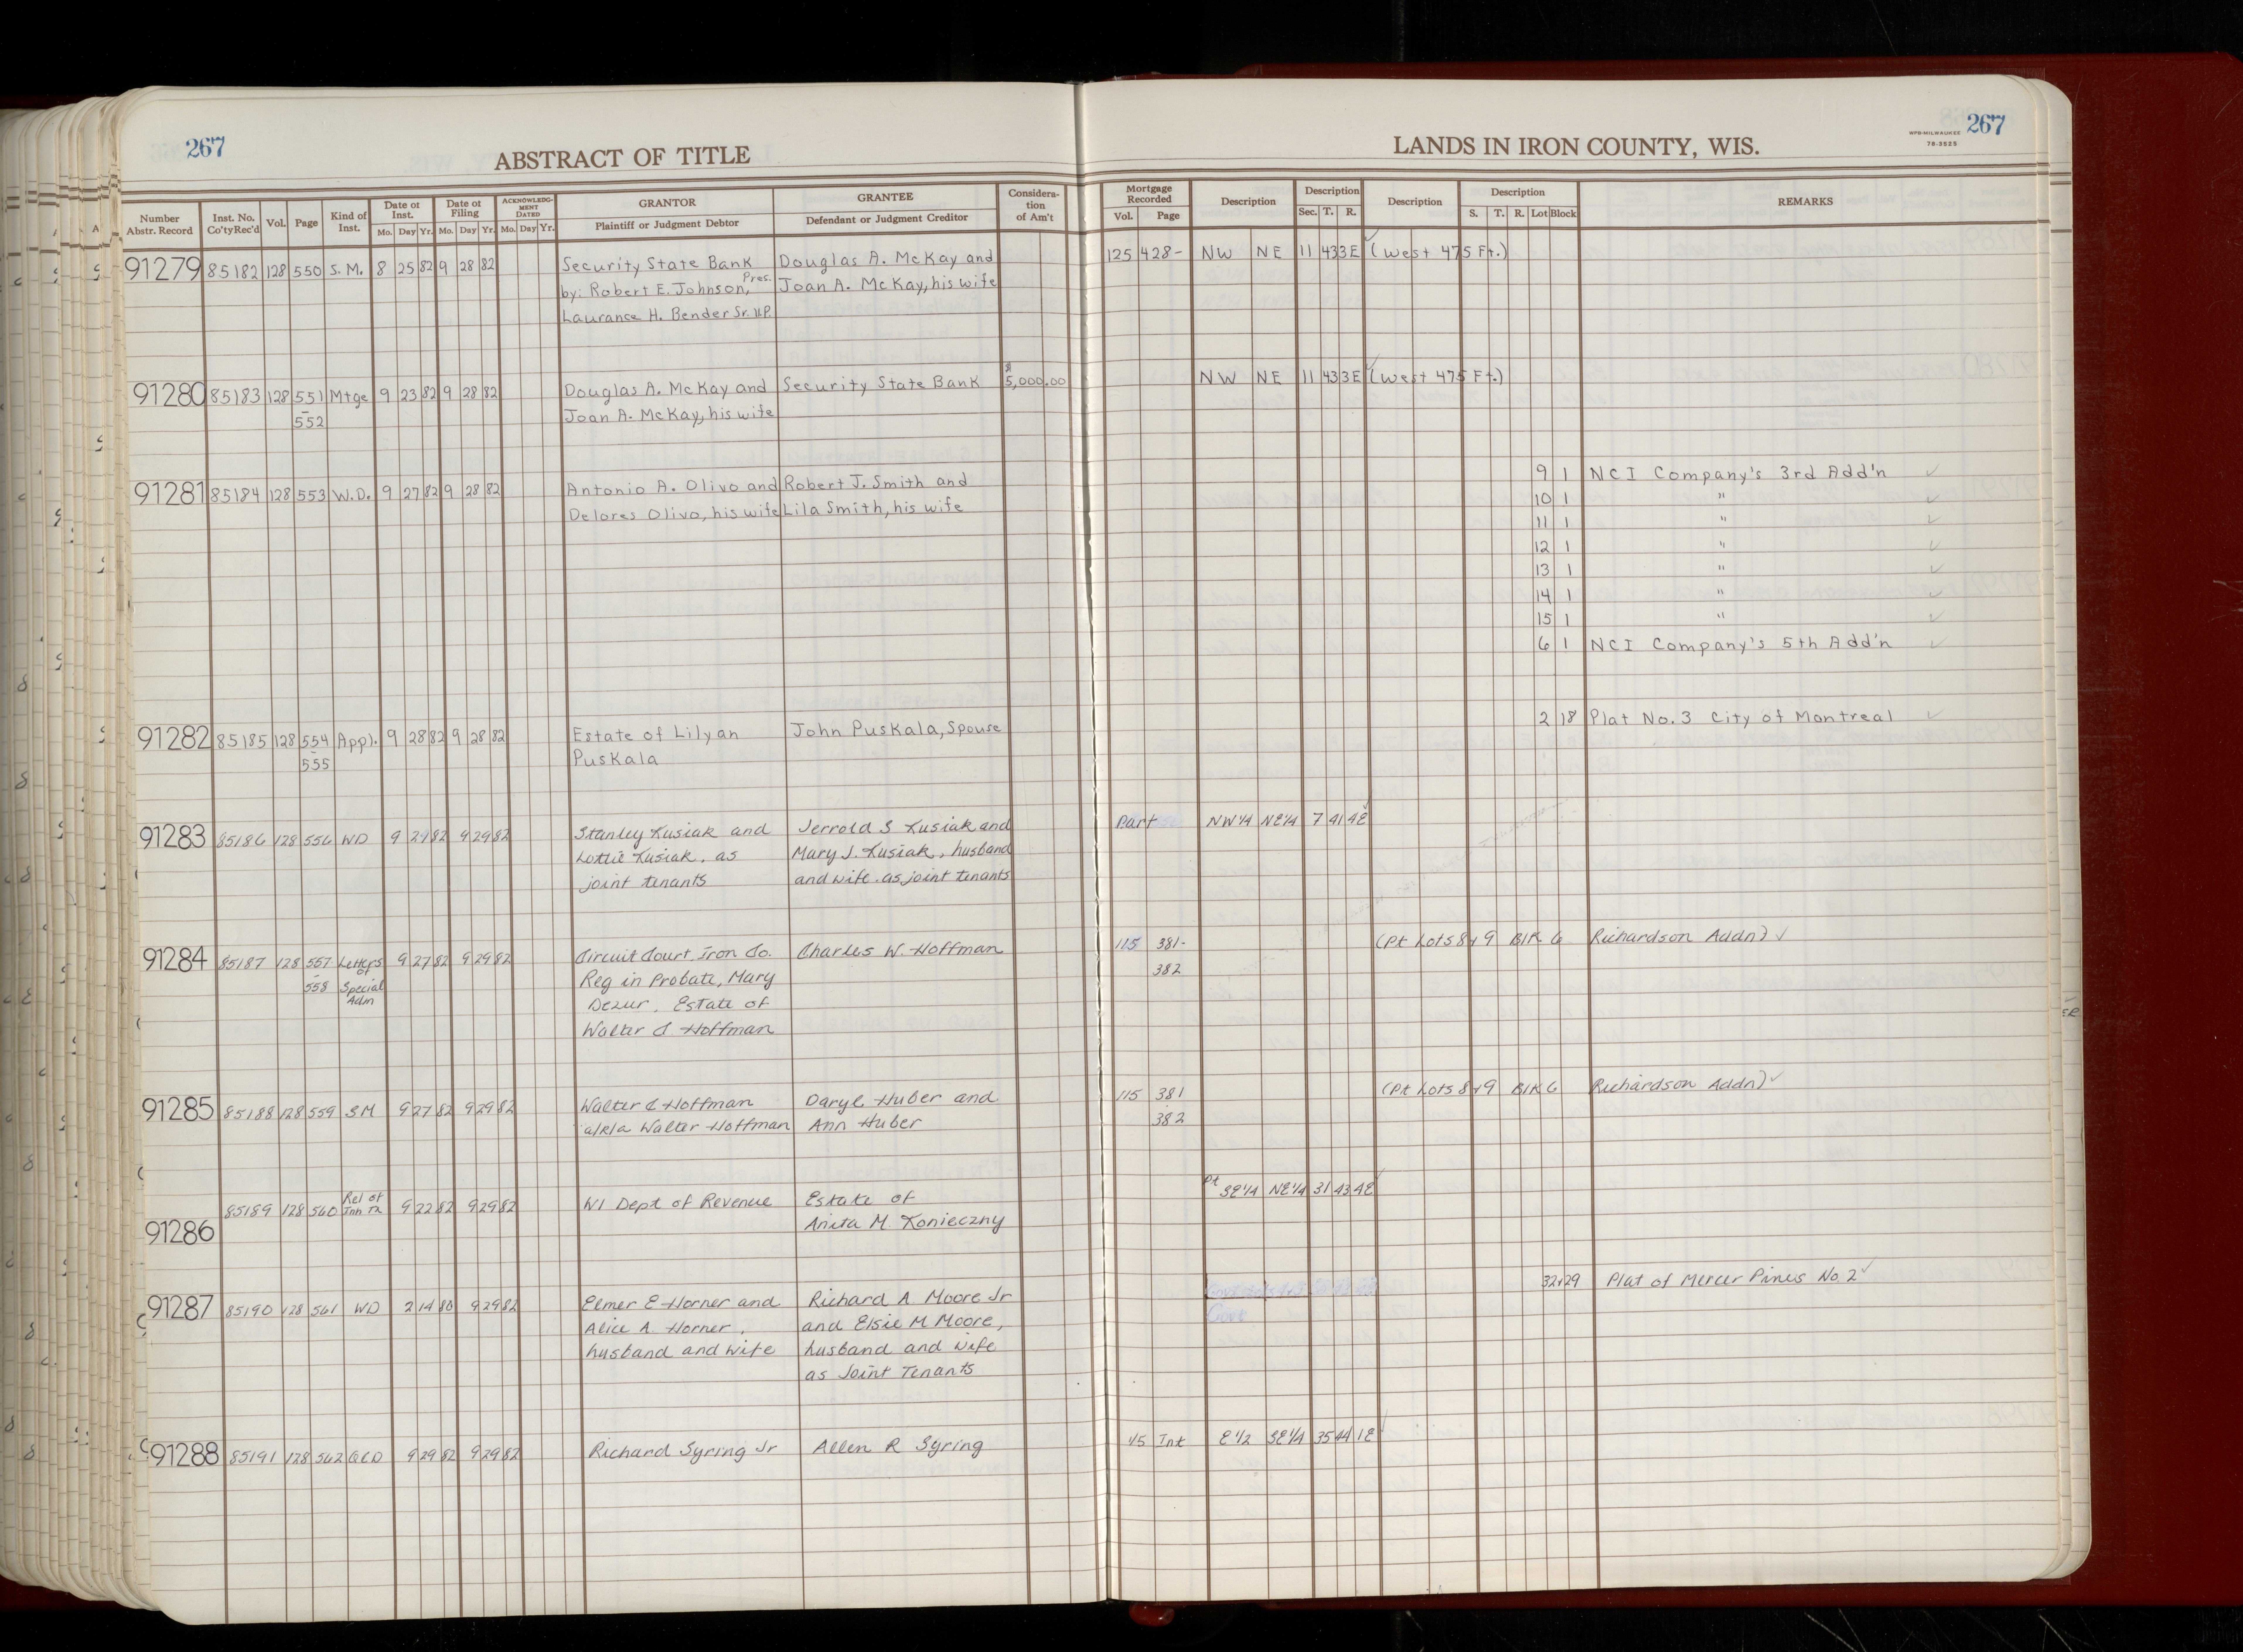 267
ABSTRACT OF TITLE
LANDS IN IRON COUNTY, WIS.
WPB-MILWAUKEE
78-3525
267
Number Abstr. Record | Inst. No. Co'ty Rec'd | Vol. | Page | Kind of Inst. | Date of Inst. Mo. Day Yr. | Date of Filing Mo. Day Yr. | ACKNOWLEDGMENT DATED Mo. Day Yr. | GRANTOR Plaintiff or Judgment Debtor | GRANTEE Defendant or Judgment Creditor | Consideration of Am't | Mortgage Recorded Vol. Page | Description | Description Sec. T. R. | Description | Description S. T. R. Lot Block | REMARKS
91279 85182 128 550 S.M. 8 25 82 9 28 82 Security State Bank Douglas A. McKay and 125 428- NW NE 11 43 3E (West 475 Ft.)
by: Robert E. Johnson, Pres. Joan A. McKay, his wife
Laurance H. Bender Sr. V.P.
91280 85183 128 551 Mtge 9 23 82 9 28 82 Douglas A. McKay and Security State Bank $5,000.00 NW NE 11 43 3E (West 475 Ft.)
-552 Joan A. McKay, his wife
9 1 NCI Company's 3rd Add'n ✓
91281 85184 128 553 W.D. 9 27 82 9 28 82 Antonio A. Olivo and Robert J. Smith and 10 1 " ✓
Delores Olivo, his wife Lila Smith, his wife 11 1 " ✓
12 1 " ✓
13 1 " ✓
14 1 " ✓
15 1 " ✓
6 1 NCI Company's 5th Add'n ✓
91282 85185 128 554 Appl. 9 28 82 9 28 82 Estate of Lilyan John Puskala, Spouse 2 18 Plat No. 3 City of Montreal ✓
-555 Puskala
91283 85186 128 556 WD 9 82 9 29 82 Stanley Kusiak and Jerrold S Kusiak and Part NW¼ NE¼ 7 41 4E
Lottie Kusiak, as Mary J. Kusiak, husband
joint tenants and wife. as joint tenants
91284 85187 128 557 Letters 9 27 82 9 29 82 Circuit Court Iron Co. Charles W. Hoffman 115 381- (Pt Lots 8+9 Blk 6 Richardson Addn) ✓
-558 of Special Adm Reg in Probate, Mary 382
Dezur, Estate of
Walter C Hoffman
91285 85188 128 559 SM 9 27 82 9 29 82 Walter C Hoffman Daryl Huber and 115 381 (Pt Lots 8+9 Blk 6 Richardson Addn) ✓
a/k/a Walter Hoffman Ann Huber 382
91286 85189 128 560 Rel of Inh Tx 9 22 82 9 29 82 WI Dept of Revenue Estate of Pt SE¼ NE¼ 31 43 4E
Anita M. Konieczny
91287 85190 128 561 WD 2 14 80 9 29 82 Elmer E Horner and Richard A Moore Jr 32+29 Plat of Mercer Pines No. 2 ✓
Alice A Horner, and Elsie M Moore,
husband and wife husband and wife
as Joint Tenants
91288 85191 128 562 QCD 9 29 82 9 29 82 Richard Syring Jr Allen R Syring 1/5 Int E½ SE¼ 35 44 1E